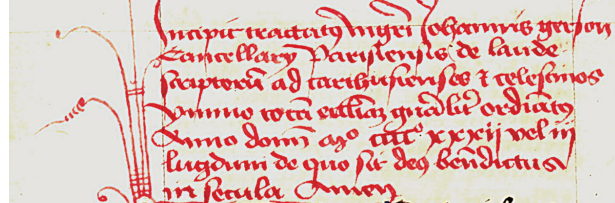 Incipit tractatus magistri Johannis gerson
Cancellarij Parisiensis de laude
scriptorum ad carthusienses et celestinos
ymmo toti ecclesie generaliter ordinatus
Anno domini Mo CCCCo xxxii vel iii
lugduni de quo sit deus benedictus
in secula Amen